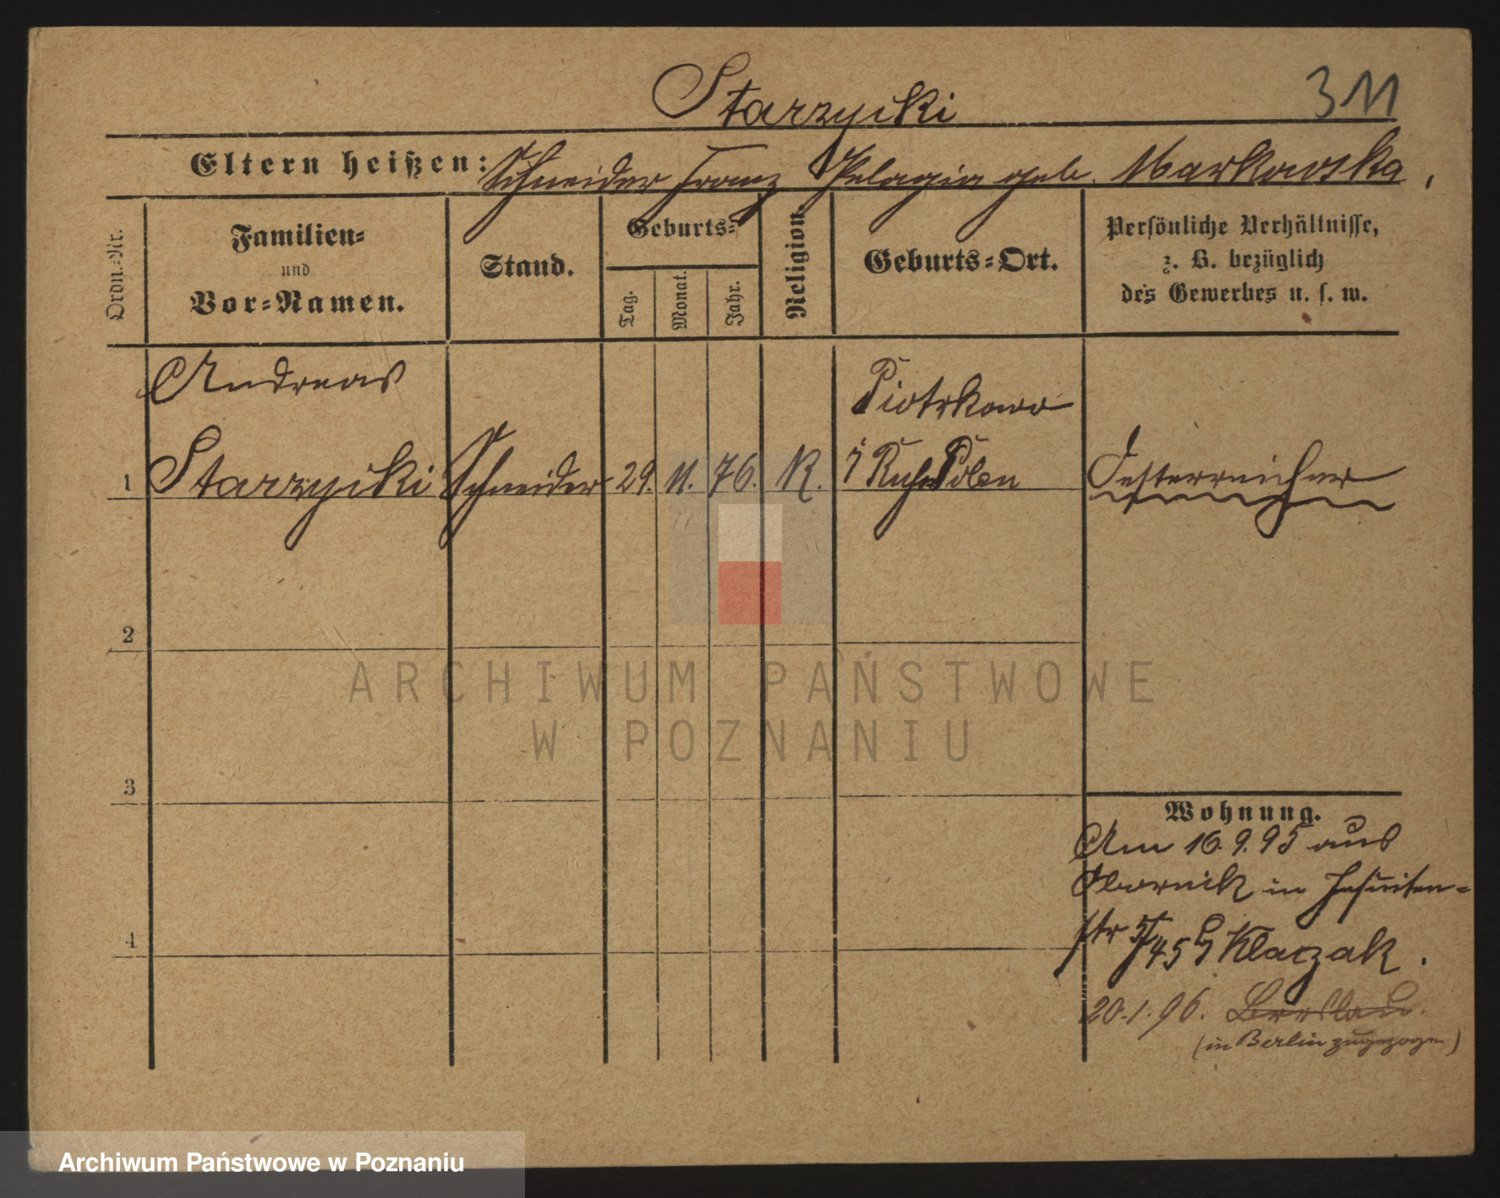 Starzycki
311
Eltern heißen: Schneider Franz Pelagia geb. Markowska.
Ordn.-Nr.
Familien-
und
Vor-Namen.
Stand.
Geburts-
Tag.
Monat.
Jahr.
Religion.
Geburts-Ort.
Persönliche Verhältnisse,
z. B. bezüglich
des Gewerbes u. s. w.
Andreas
Piotrkowo
1 Starzycki Schneider 29. 11. 76. R. i Russ Polen Oesterreicher
2
3
4
Wohnung.
Am 16.9.95 aus
Obornik in Jesuiten-
str 5/45 b Klaczak.
20.1.96. Breslau.
(in Berlin zugezogen)
ARCHIWUM PAŃSTWOWE
W POZNANIU
Archiwum Państwowe w Poznaniu